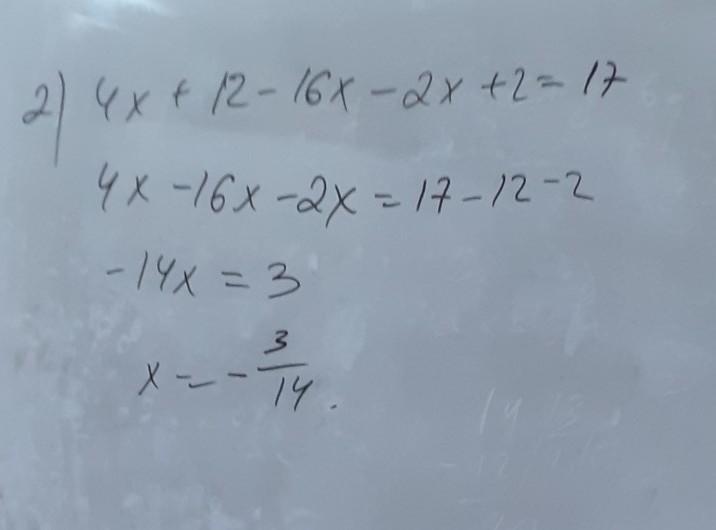 2) 4x + 12 - 16x - 2x + 2 = 17
4x - 16x - 2x = 17 - 12 - 2
-14x = 3
x = - 3/14.